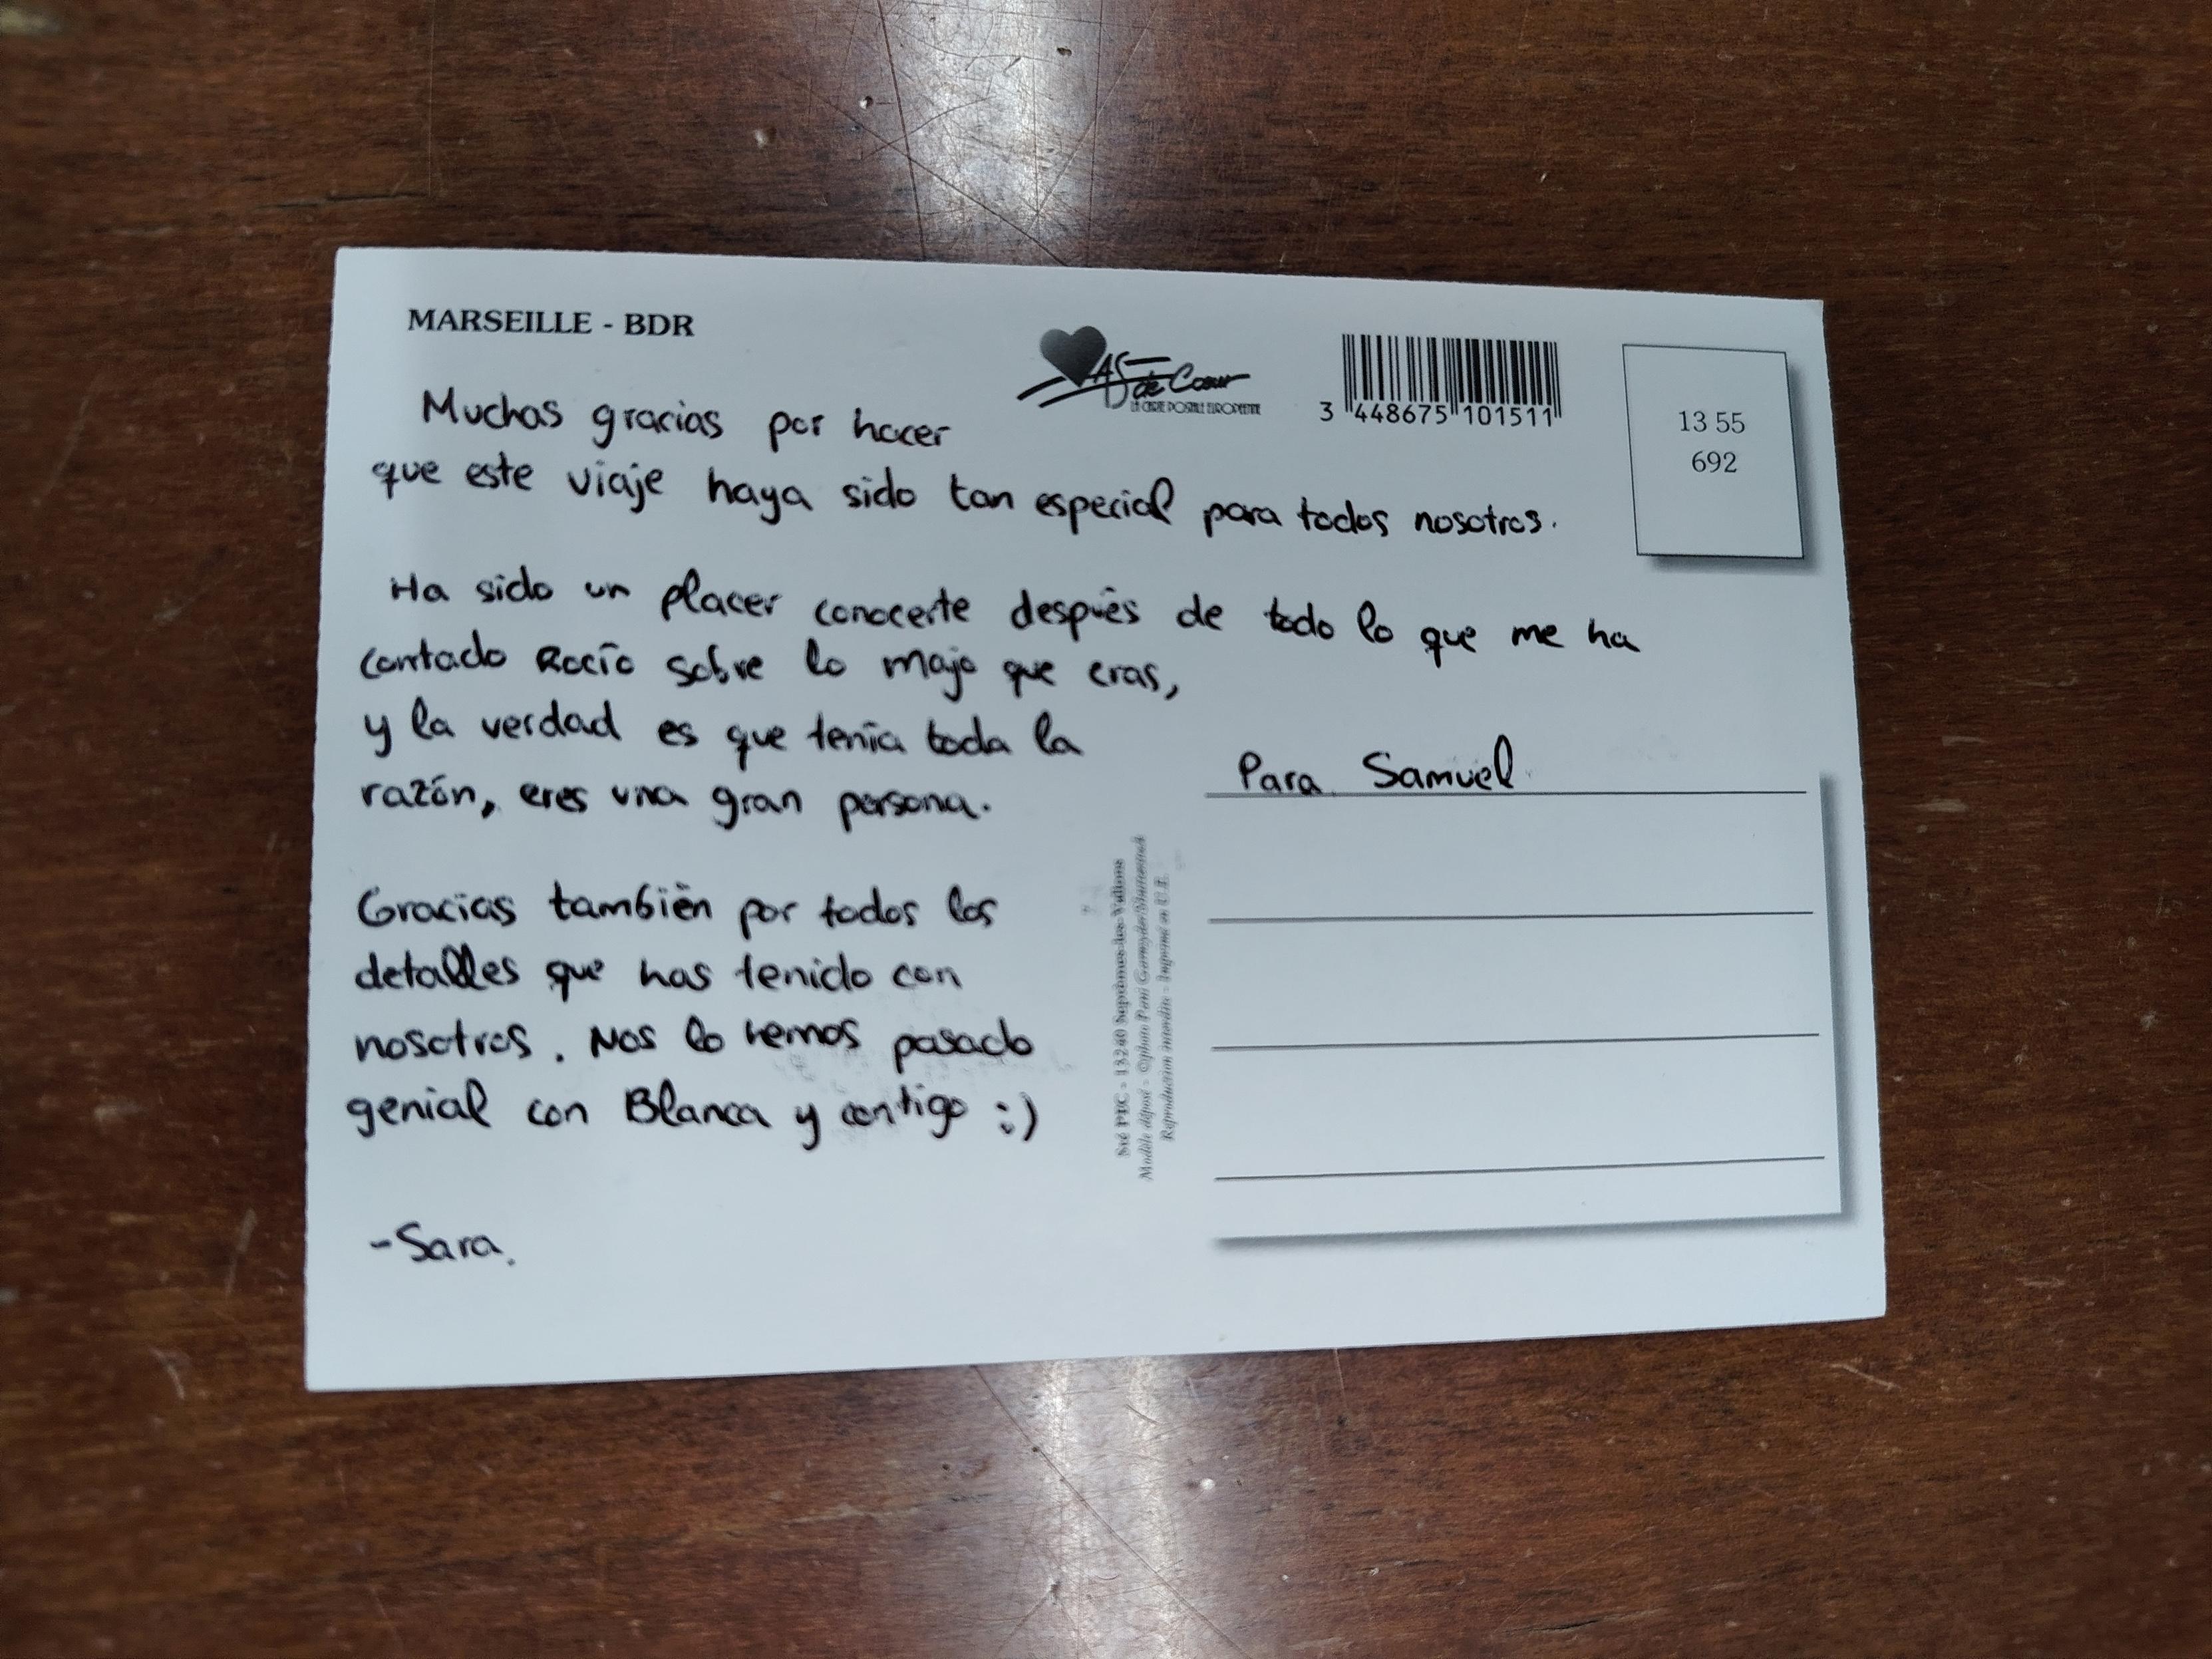 MARSEILLE - BDR
AS de Cœur
LA CARTE POSTALE EUROPEENNE
3 448675 101511
13 55
692
Muchas gracias por hacer
que este viaje haya sido tan especial para todos nosotros.
Ha sido un placer conocerte después de todo lo que me ha
contado Rocío sobre lo majo que eras,
y la verdad es que tenía toda la
razón, eres una gran persona.
Gracias también por todos los
detalles que has tenido con
nosotros. Nos lo hemos pasado
genial con Blanca y contigo :)
-Sara.
Para Samuel
Sté PEC - 13240 Septèmes-les-Vallons
Modèle déposé - ©photo
Reproduction interdite - Imprimé en U.E.